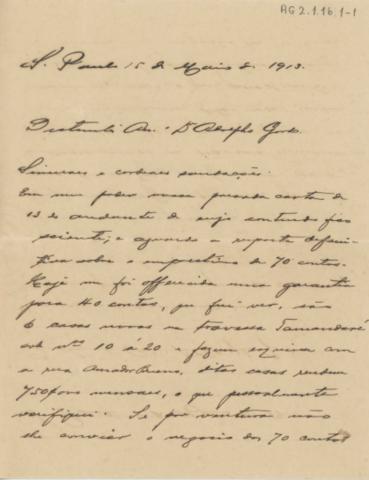 AG 2.1.16.1-1
S. Paulo 15 de Maio de 1913.
Distincto Am.º Dr Adolpho Gordo.
Sinceras e cordeaes saudações.
Em meu poder vossa presada carta de
13 do andante de cujo contendo fico
sciente, e aguardo a resposta defini-
tiva sobre o emprestimo de 70 contos.
Hoje me foi offerecida uma garantia
para 40 contos, que fui ver, são
6 casas novas na travessa Tamandaré
sob nos 10 á 20 e fazem esquina com
a rua Amador Bueno, ditas casas rendem
750$000 mensaes, o que pessoalmente
verifiquei. Se por ventura não
lhe convier o negocio dos 70 contos